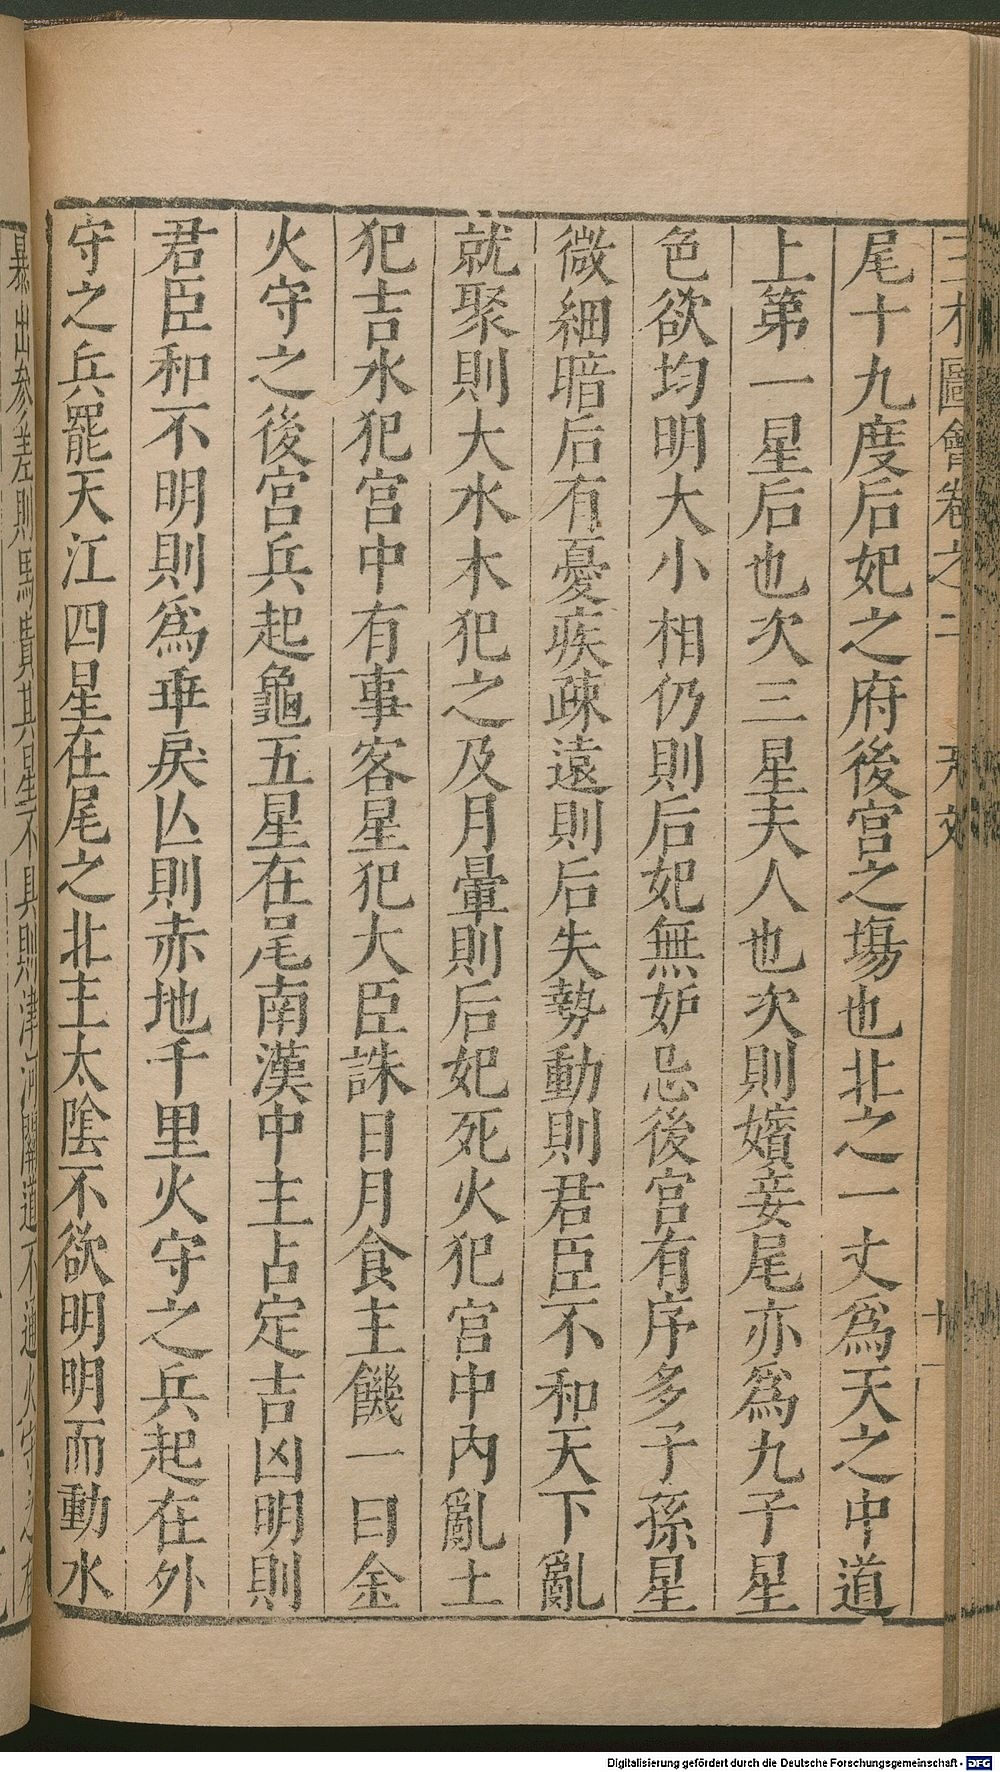 三才圖會卷之二 天文 十一
尾十九度后妃之府後宮之塲也北之一丈爲天之中道
上第一星后也次三星夫人也次則嬪妾尾亦爲九子星
色欲均明大小相仍則后妃無妒忌後宮有序多子孫星
微細暗后有憂疾疎遠則后失勢動則君臣不和天下亂
就聚則大水木犯之及月暈則后妃死火犯宮中內亂土
犯吉水犯宮中有事客星犯大臣誅日月食主饑一曰金
火守之後宮兵起龜五星在尾南漢中主占定吉凶明則
君臣和不明則爲乖戾亾則赤地千里火守之兵起在外
守之兵罷天江四星在尾之北主太陰不欲明明而動水
暴出參差則馬貴其星不具則津河關道不通火守之有
Digitalisierung gefördert durch die Deutsche Forschungsgemeinschaft - DFG